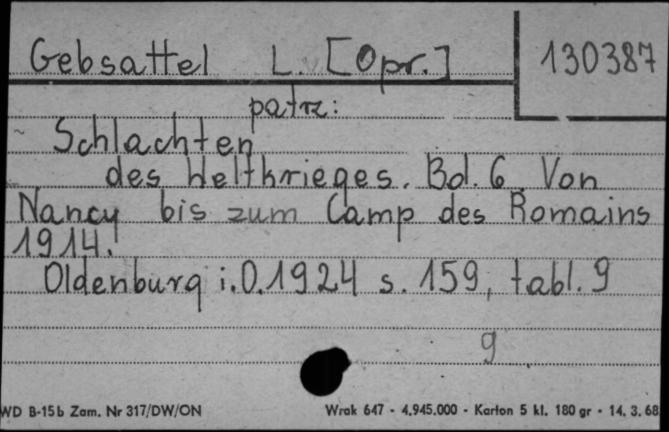 Gebsattel L. v [Opr.] 130387
patrz:
Schlachten
des Weltkrieges. Bd. 6. Von
Nancy bis zum Camp des Romains
1914.
Oldenburg i.O. 1924 s. 159, tabl. 9
9
WD B-15b Zam. Nr 317/DW/ON Wrak 647 - 4.945.000 - Karton 5 kl. 180 gr - 14. 3. 68